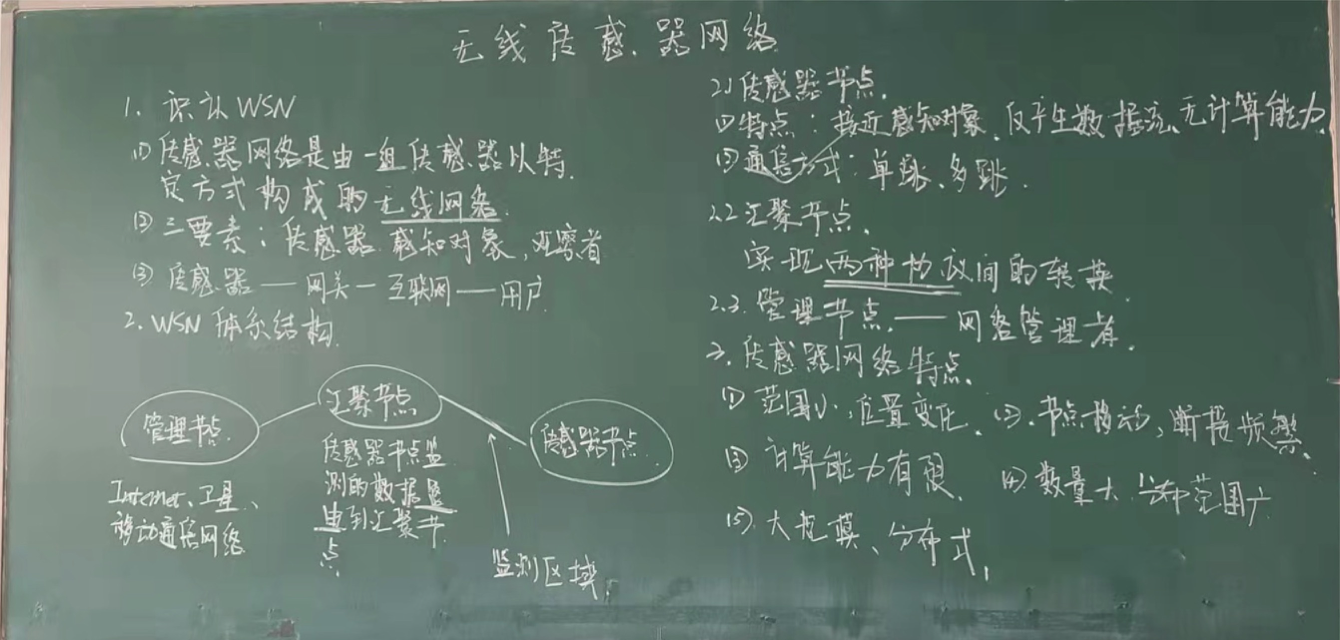 无线传感器网络
1. 识认WSN
(1) 传感器网络是由一组传感器以特
定方式构成的无线网络.
(2) 三要素：传感器 感知对象，观察者
(3) 传感器——网关—互联网——用户
2. WSN 体系结构.
管理节点.
汇聚节点
传感器节点
Internet、卫星、
移动通信网络
传感器节点监
测的数据
到汇聚节
点
监测区域.
2.1 传感器节点.
(1) 特点：接近感知对象、仅产生数据流、无计算能力
(2) 通信方式：单跳、多跳.
2.2 汇聚节点.
实现两种协议间的转换
2.3. 管理节点.——网络管理者.
3. 传感器网络特点.
(1) 范围小，位置变化. (2). 节点移动，断接频繁.
(3) 计算能力有限. (4) 数量大.分布范围广
(5) 大规模、分布式.